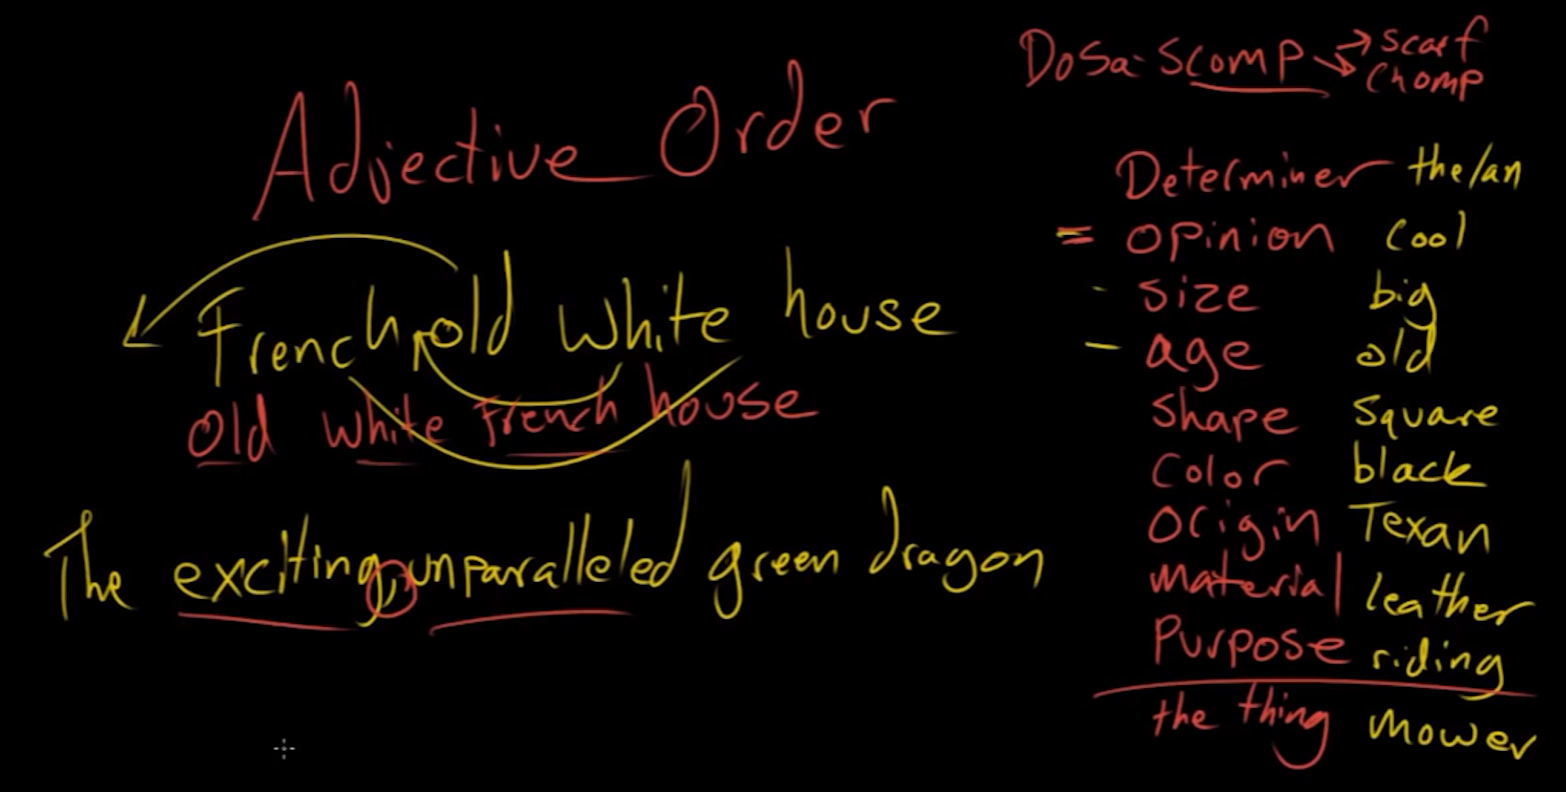 Adjective Order
French, old white house
Old white French house
The exciting, unparalleled green dragon
DoSa-Scomp → scarf
chomp
Determiner the/an
= opinion cool
- size big
- age old
Shape Square
Color black
Origin Texan
material leather
Purpose riding
the thing mower